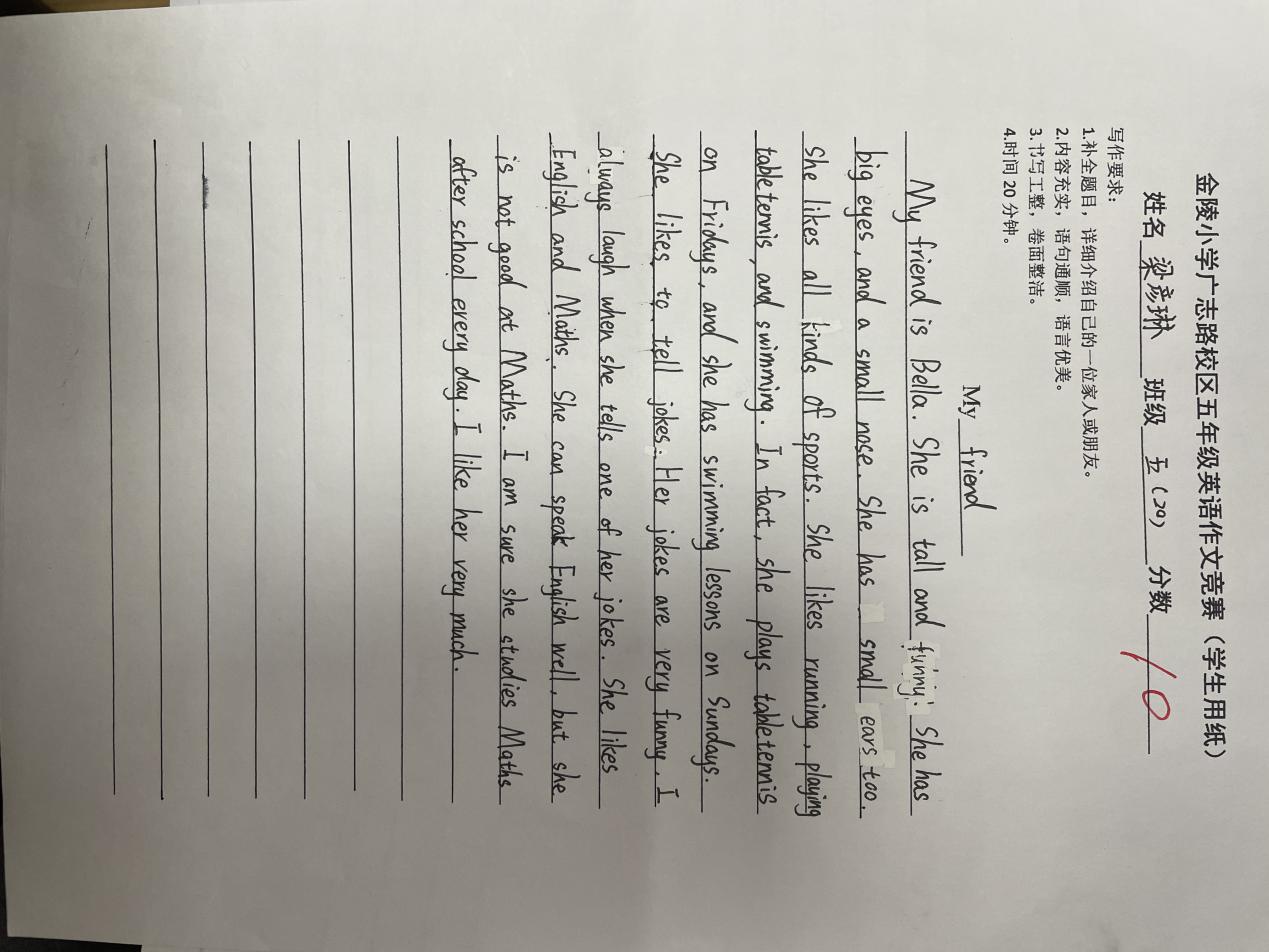 金陵小学广志路校区五年级英语作文竞赛（学生用纸）
姓名 梁彦琳 班级 五（20） 分数 10
写作要求：
1.补全题目，详细介绍自己的一位家人或朋友。
2.内容充实，语句通顺，语言优美。
3.书写工整，卷面整洁。
4.时间 20 分钟。
My friend
My friend is Bella. She is tall and funny. She has
big eyes, and a small nose. She has small ears too.
She likes all kinds of sports. She likes running, playing
table tennis, and swimming. In fact, she plays table tennis
on Fridays, and she has swimming lessons on Sundays.
She likes to tell jokes. Her jokes are very funny. I
always laugh when she tells one of her jokes. She likes
English and Maths. She can speak English well, but she
is not good at Maths. I am sure she studies Maths
after school every day. I like her very much.